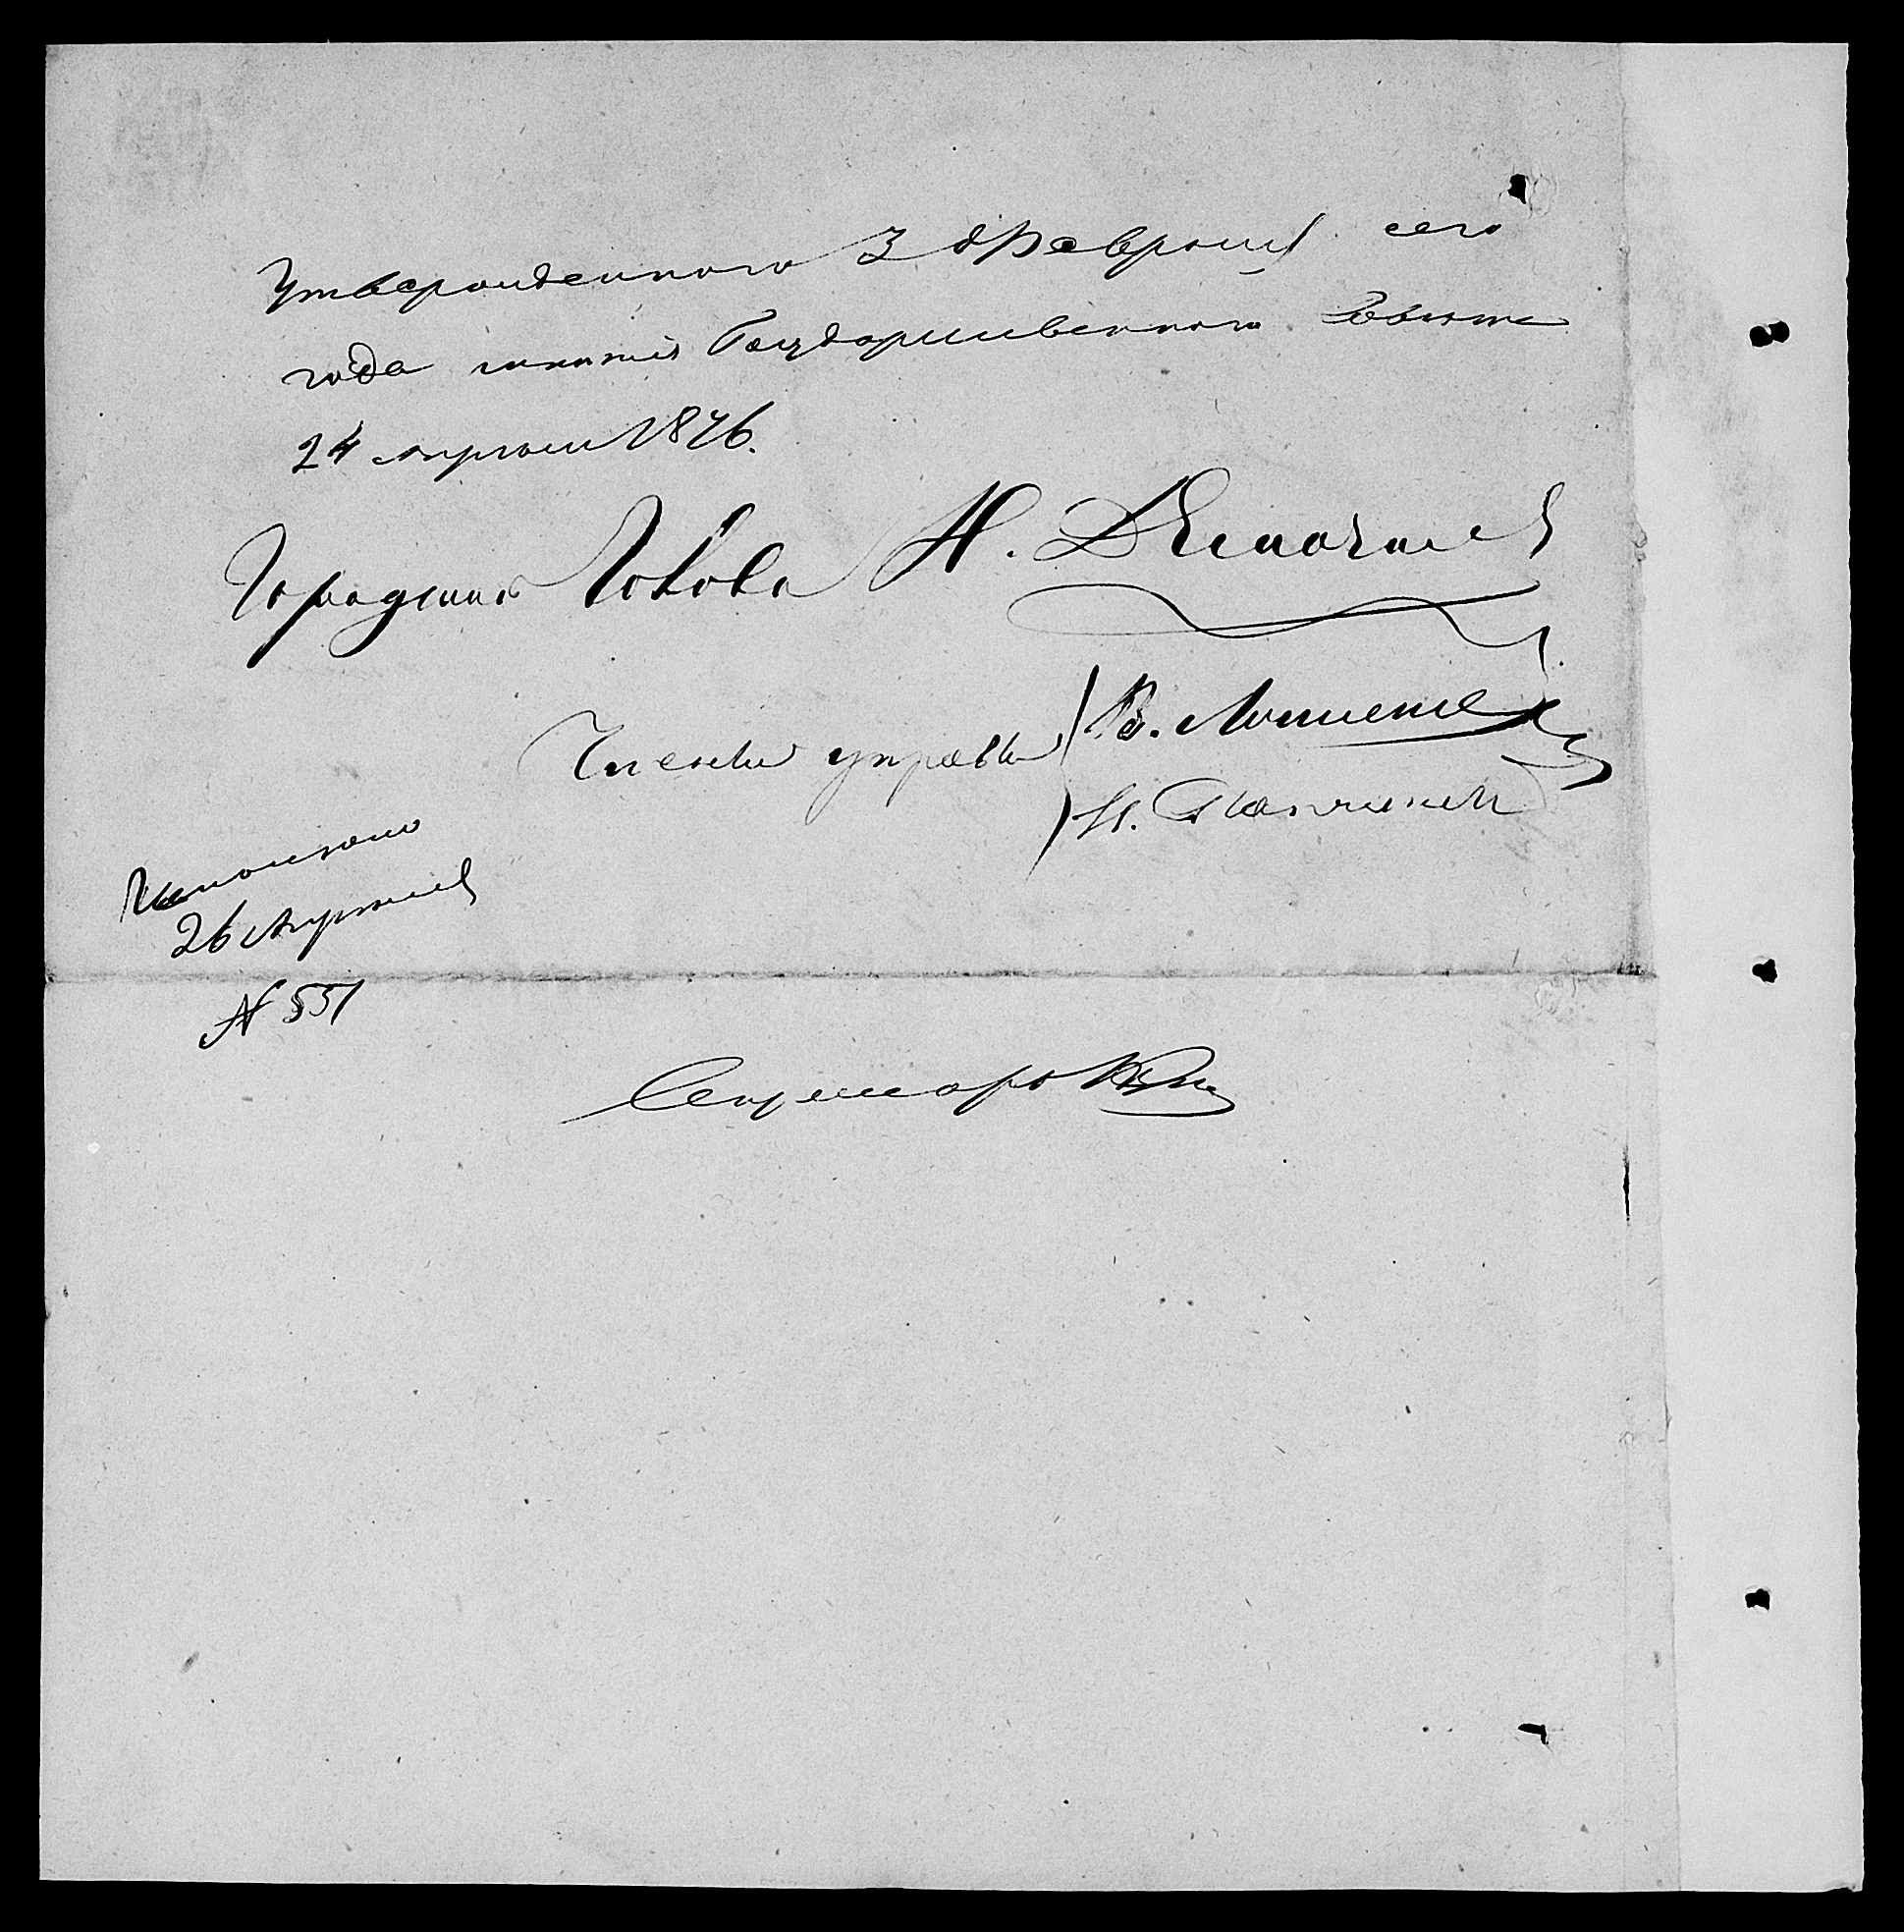 утвержденного 3 Февраля сего
года мнѣнiя Государственнаго Совѣта
24 апрѣля 1876.
Городской Голова Н.
Члены управы В.
Н.
Исполнено
26 Апрѣля
№ 551
Секретарь